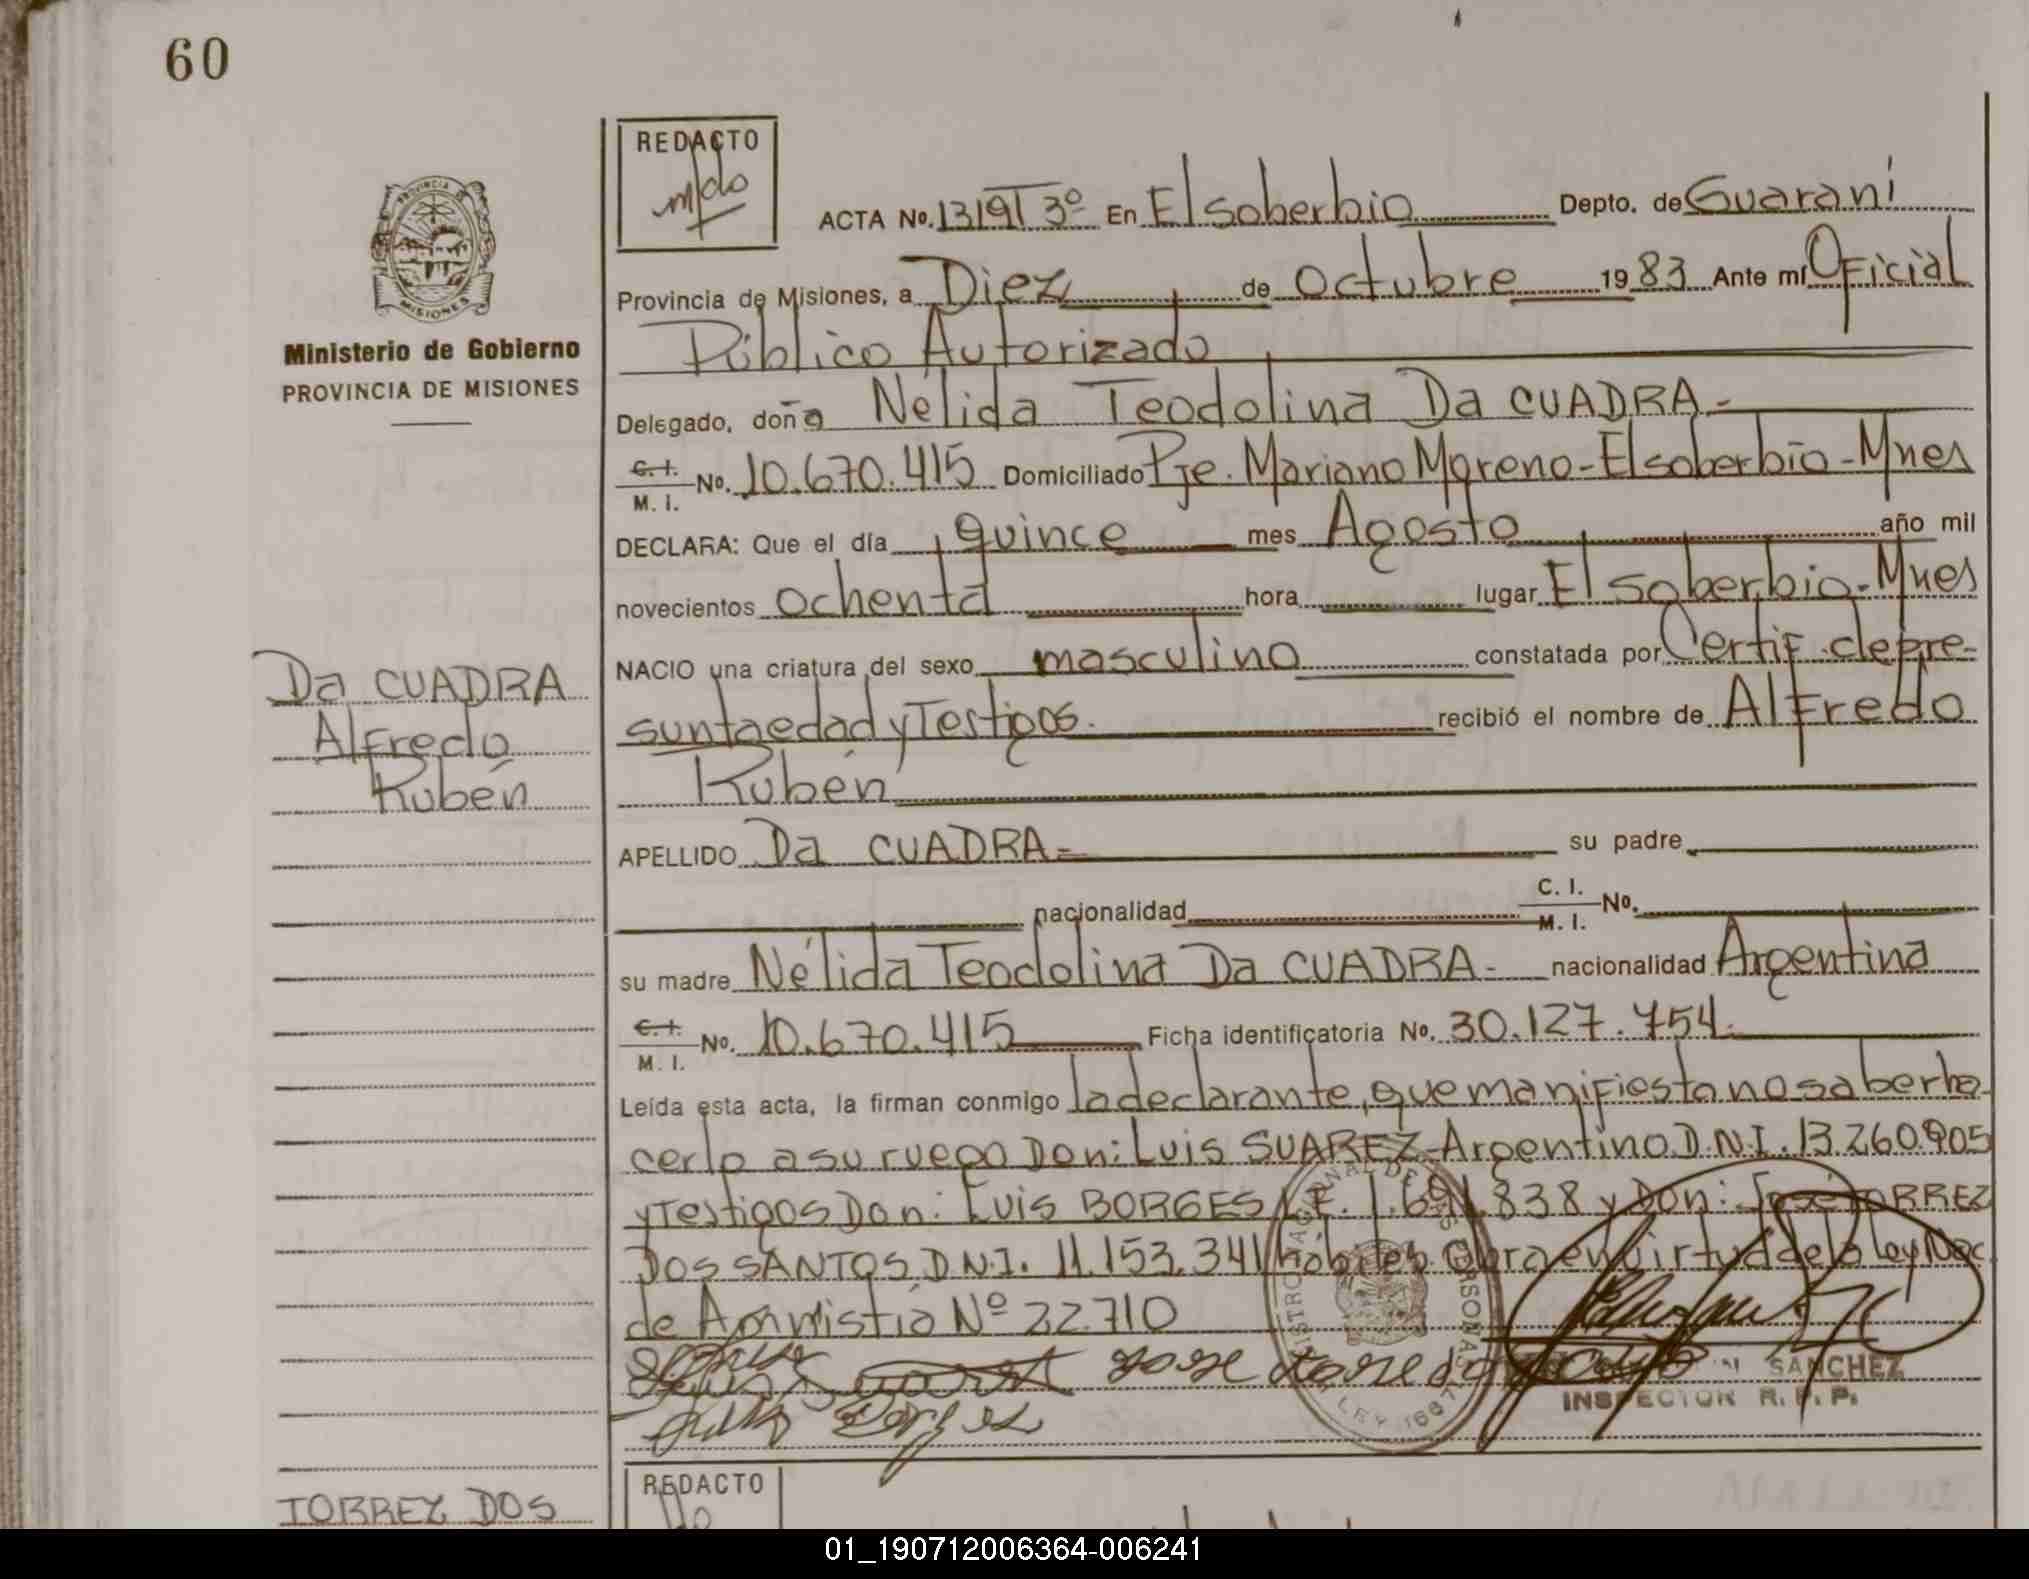 60
REDACTO
PROVINCIA DE
MISIONES
Ministerio de Gobierno
PROVINCIA DE MISIONES
ACTA No. 1319T3º En El soberbio Depto. de Guaraní
Provincia de Misiones, a Diez de Octubre 1983 Ante mí Oficial
Público Autorizado
Delegado, doña Nélida Teodolina Da CUADRA.-
C. I.
M. I. No. 10.670.415 Domiciliado Pje. Mariano Moreno - El soberbio - Mnes
DECLARA: Que el día quince mes Agosto año mil
novecientos ochenta hora lugar El soberbio - Mnes
NACIO una criatura del sexo masculino constatada por Certif. de pre-
sunta edad y Testigos. recibió el nombre de Alfredo
Rubén
Da CUADRA
Alfredo
Rubén
APELLIDO Da CUADRA.- su padre
nacionalidad C. I.
M. I. No.
su madre Nélida Teodolina Da CUADRA.- nacionalidad Argentina
C. I.
M. I. No. 10.670.415 Ficha identificatoria No. 30.127.754.
Leída esta acta, la firman conmigo la declarante, que manifiesta no saber ha-
cerlo a su ruego Don: Luis SUAREZ Argentino D.N.I. 13.260.905
y Testigos Don: Luis BORGES L.E. 1.691.838 y Don: José TORREZ
DOS SANTOS D.N.I. 11.153.341 hábiles. Obra en virtud de la ley Nac.
de Amnistia Nº 22.710
LEY 1667
SANCHEZ
INSPECTOR R. P. P.
TORREZ DOS
REDACTO
01_190712006364-006241